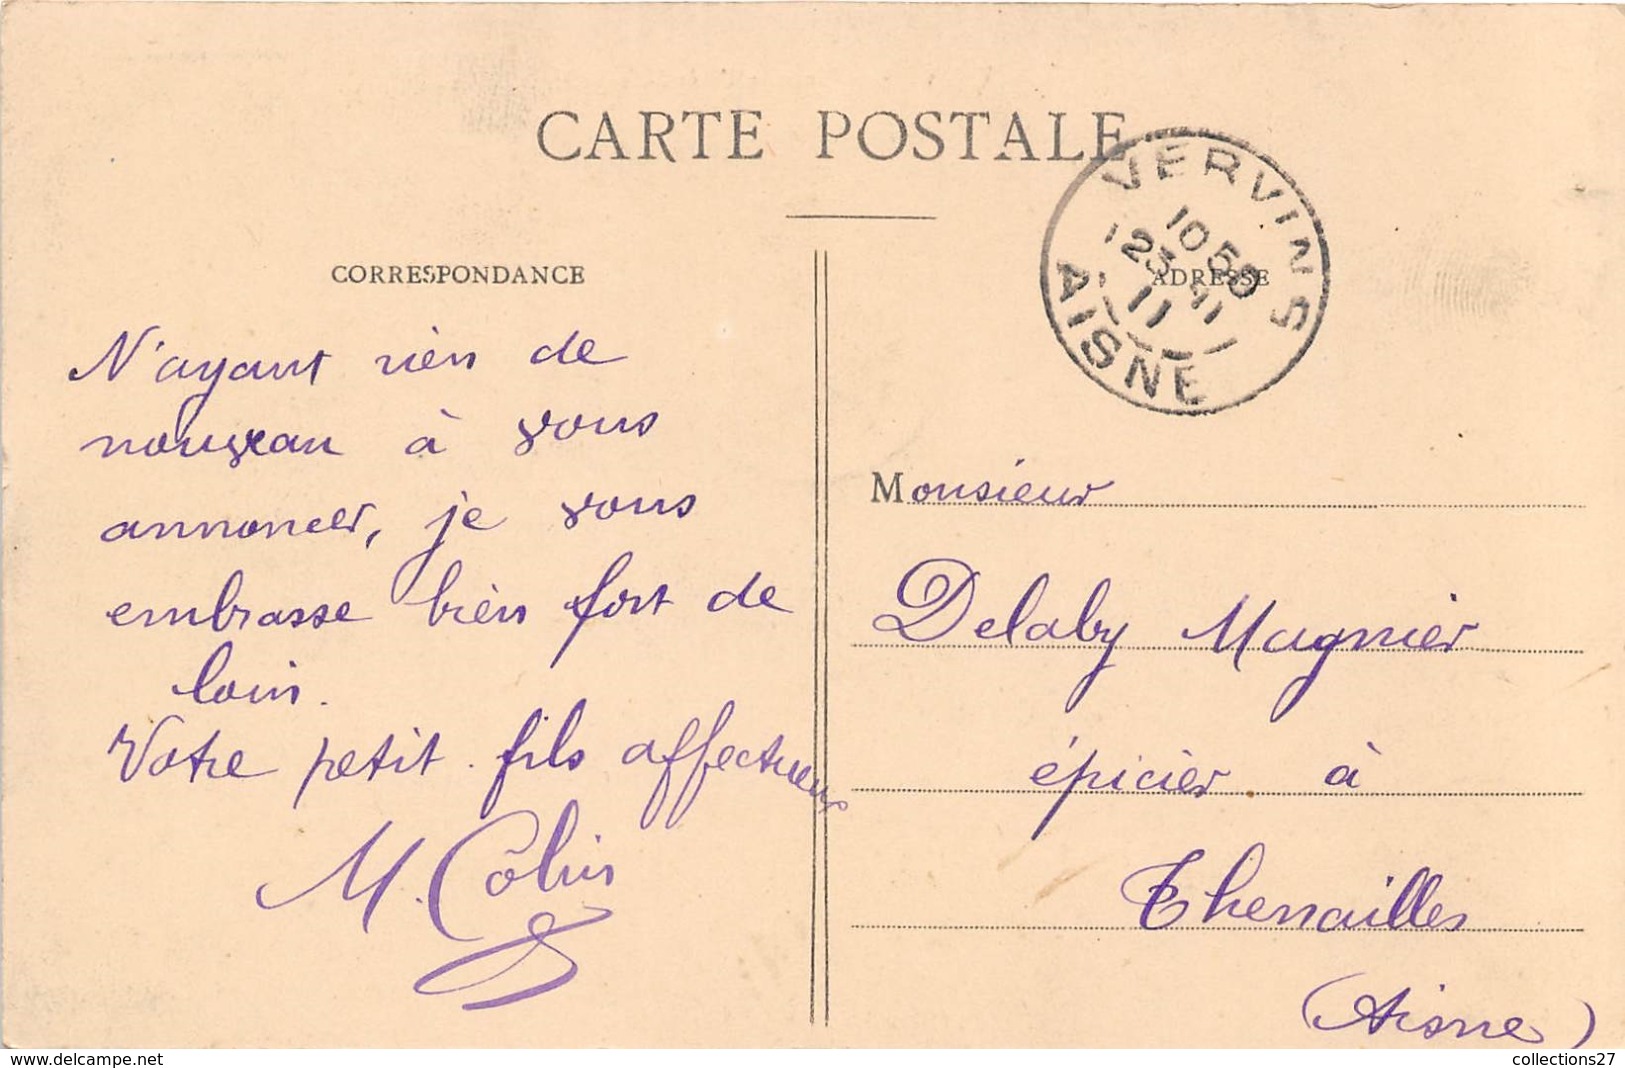 CARTE POSTALE
CORRESPONDANCE
N'ayant rien de
nouveau à vous
annoncer, je vous
embrasse bien fort de
loin.
Votre petit fils affectueux
M. Colin
VERVINS
10 50
23 11
11
AISNE
ADRESSE
Monsieur
Delaby Magnier
épicier à
Thenailles
(Aisne)
www.delcampe.net
collections27